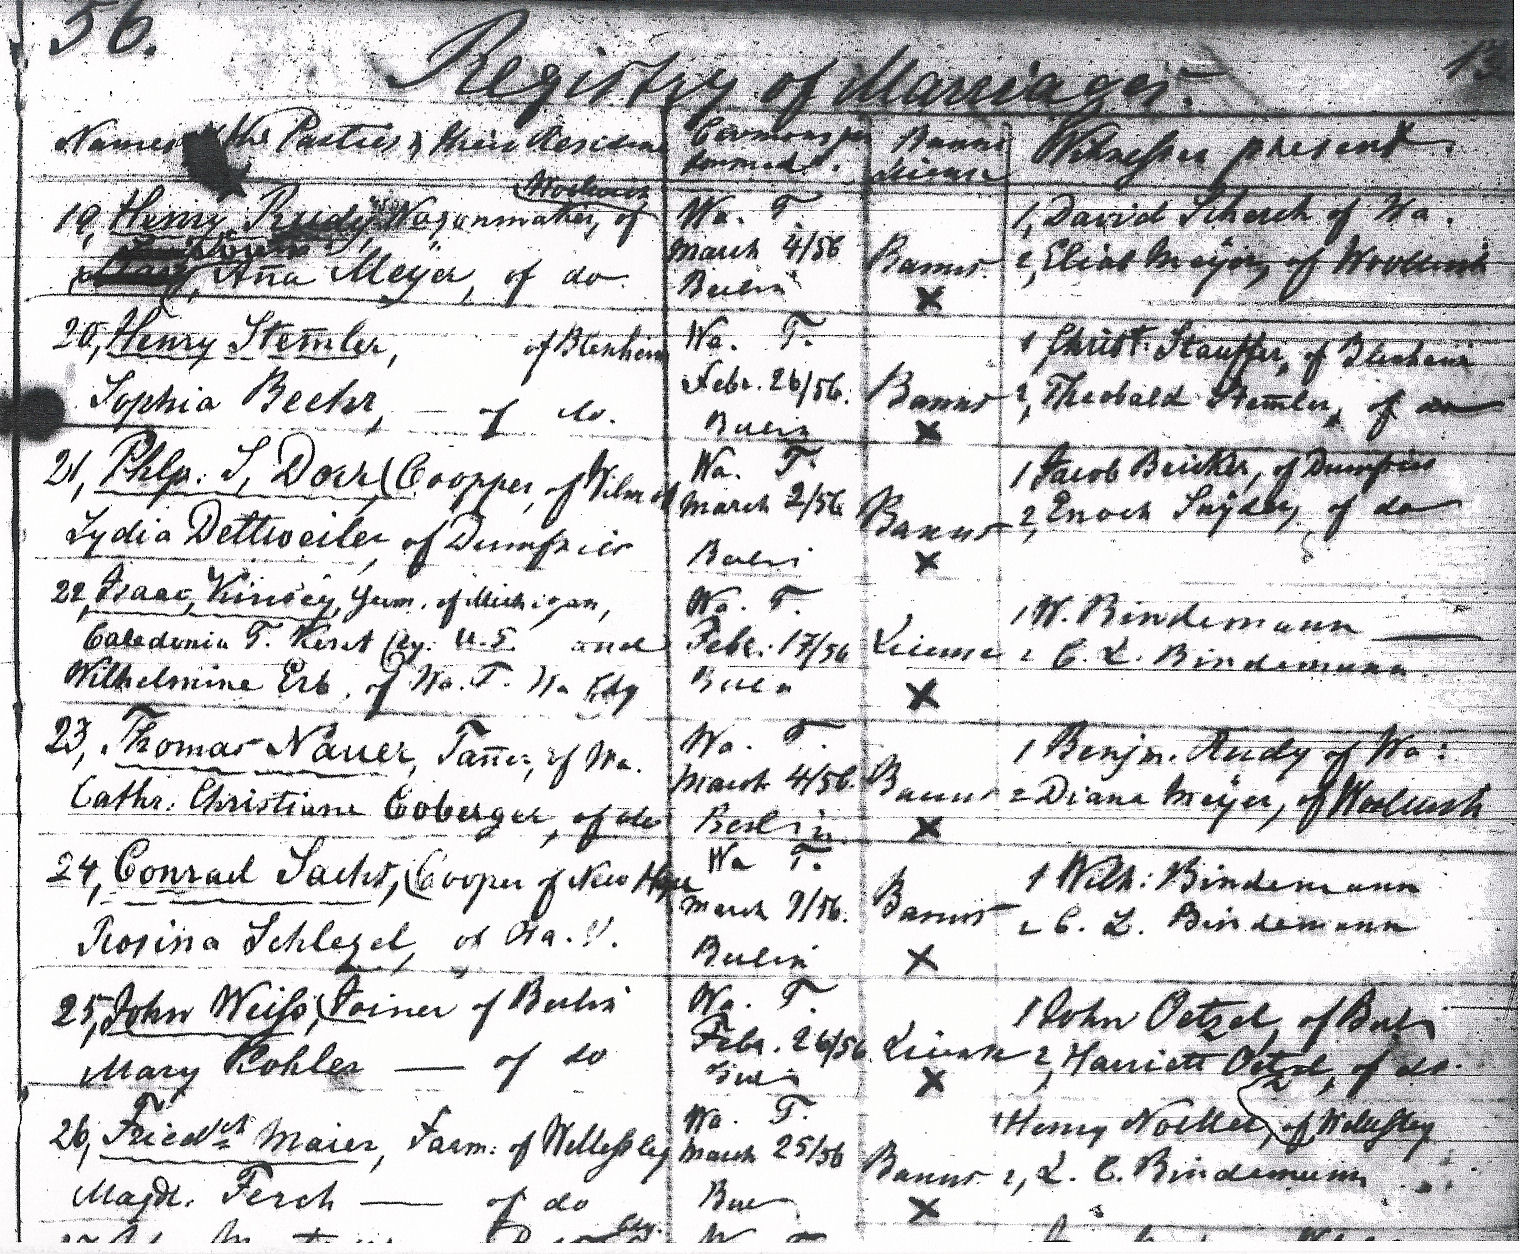 56.
Registry of Marriages. 13
Names the Parties & their Residence
Banns
License
Witnesses present.
Woolwich
19, Henry Rudy, Wagonmaker, of
Anna Meyer, of do.
Wa. T.
March 4/56
Berlin
Banns
X
1, David Scherch of Wa.
2, Elias Meyer, of Woolwich
20, Henry Stemler, of Blenheim
Sophia Beehr, — of do.
Wa. T.
Febr. 26/56.
Berlin
Banns
X
1 Christ. Stauffer, of Blenheim
2, Theobald Stemler, of do
21, Phlp. S. Dorr, (Coopper, of Wilmot
Lydia Dettweiler, of Dumfries
Wa. T.
March 2/56
Berlin
Banns
X
1 Jacob Bricker, of Dumfries
2, Enoch Snyder, of do
22, Isaac Kinsey, of Michigan,
Caledonia T. Kent Cty. U.S. and
Wilhelmine Erb, of Wa. T. Wa Cty
Wa. T.
Febr. 17/56
Berlin
License
X
1 W. Bindemann —
2 C. L. Bindemann
23, Thomas Nauer, Tanner, of Wa.
Cathr. Christiane Coberger, of do
Wa. T.
March 4/56.
Berlin
Banns
X
1 Benjm. Rudy of Wa:
2 Diana Meyer, of Woolwich
24, Conrad Sachs, (Cooper of New Hope
Rosina Schlegel, of Wa. T.
Wa T.
March 9/56.
Berlin
Banns
X
1 Wilh: Bindemann
2 C. L. Bindemann
25, John Weiss, Joiner of Berlin
Mary Kohler — of do
Wa. T.
Febr. 26/56
Berlin
License
X
1 John Oetzel, of Berlin
2, Harriett Oetzel, of do.
26, Friedrch Maier, Farm: of Wellessley
Magd. Ferch — of do
Wa. T.
March 25/56
Ber
Banns
X
1 Henry Noelker, of Wellessley
2, L. C. Bindemann